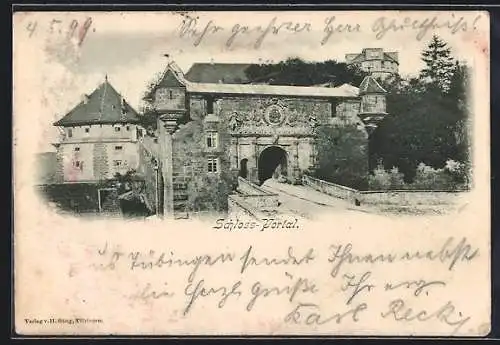 4 5. 99
Sehr geehrter Herr
Schloss-Portal.
Aus Tübingen sendet Ihnen nebst
herzl. grüße Ihr erg.
Karl Reck,
Verlag v. H. Sting, Tübingen.